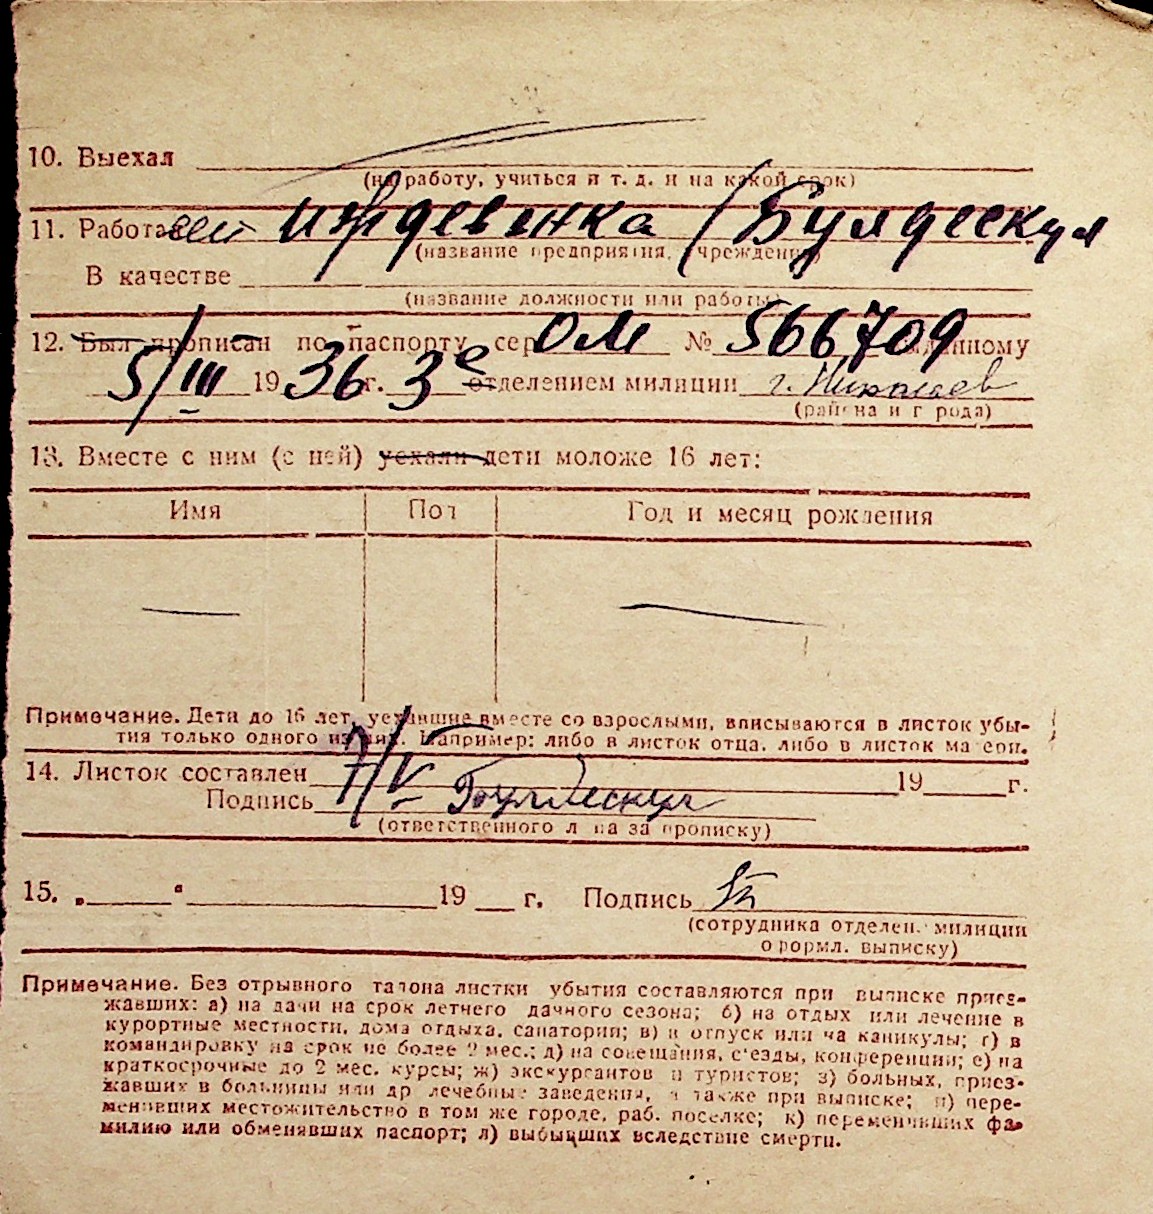 10. Выехал
(на работу, учиться и т. д. и на какой срок)
11. Работа иждевенка (Булдескул
(название предприятия, учреждения)
В качестве
(название должности или работы)
12. Был прописан по паспорту сер ОМ № 566709 выданному
5/III 1936 г. 3е отделением милиции г. Николаев
(района и города)
13. Вместе с ним (с ней) уехали дети моложе 16 лет:
Имя Пол Год и месяц рождения
— —
Примечание. Дети до 16 лет, уехавшие вместе со взрослыми, вписываются в листок убы-
тия только одного из них. Например: либо в листок отца, либо в листок матери.
14. Листок составлен 7/V 19 г.
Подпись Булдескул
(ответственного лица за прописку)
15. „ “ 19 г. Подпись
(сотрудника отделен. милиции
оформл. выписку)
Примечание. Без отрывного талона листки убытия составляются при выписке приез-
жавших: а) на дачи на срок летнего дачного сезона; б) на отдых или лечение в
курортные местности, дома отдыха, санатории; в) в отпуск или на каникулы; г) в
командировку на срок не более 2 мес.; д) на совещания, с'езды, конференции; е) на
краткосрочные до 2 мес. курсы; ж) экскурсантов и туристов; з) больных, приез-
жавших в больницы или др лечебные заведения, а также при выписке; и) пере-
менивших местожительство в том же городе, раб. поселке; к) переменивших фа-
милию или обменявших паспорт; л) выбывших вследствие смерти.